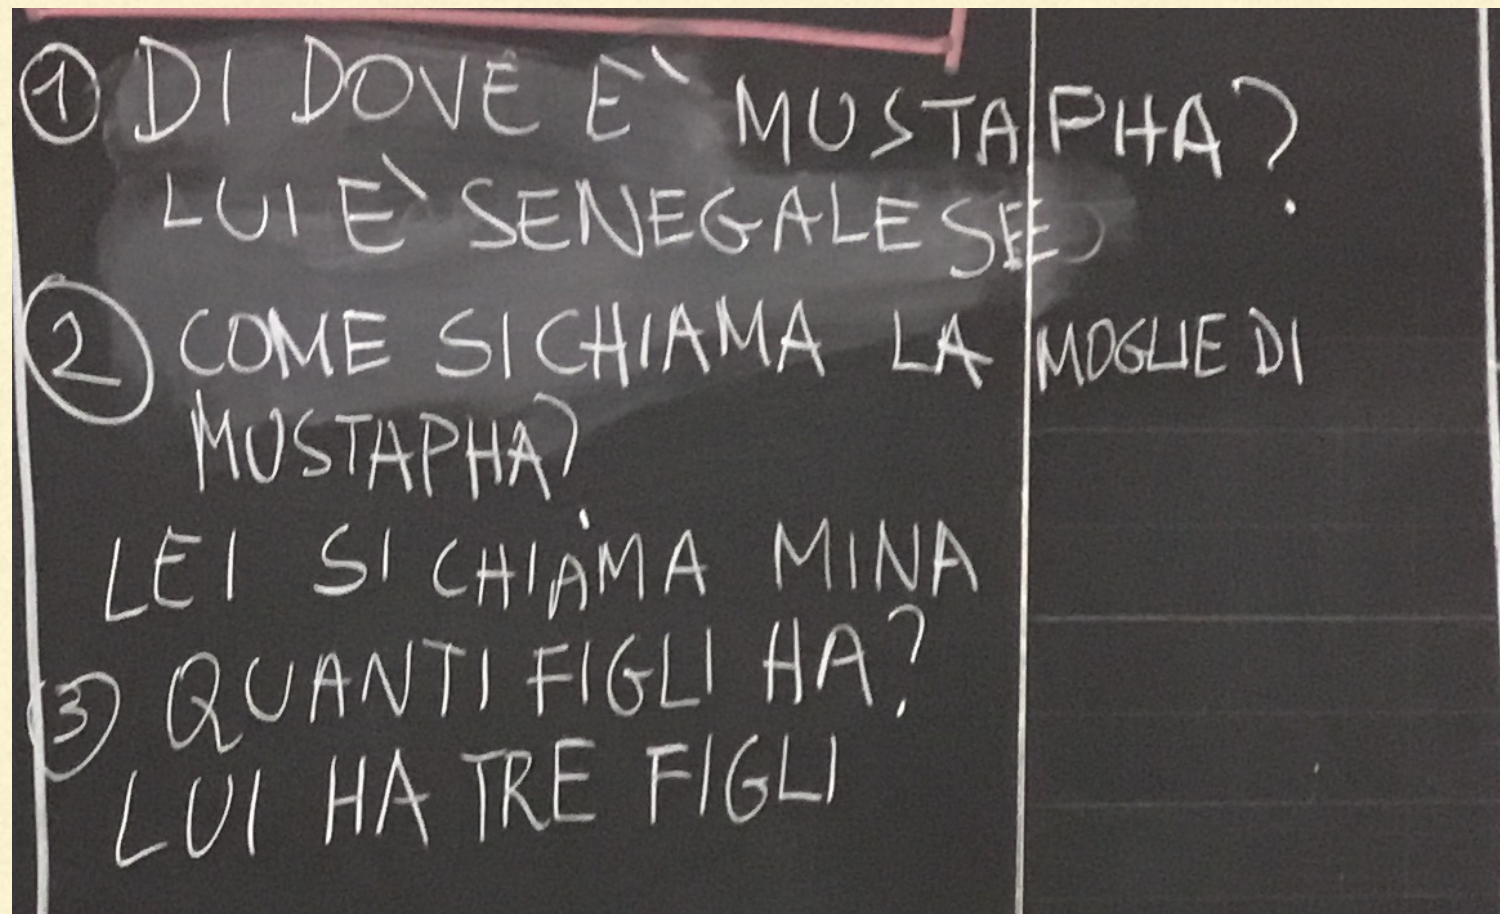 ① DI DOVE È MUSTAPHA?
LUI È SENEGALESE
② COME SI CHIAMA LA MOGLIE DI
MUSTAPHA?
LEI SI CHIAMA MINA
③ QUANTI FIGLI HA?
LUI HA TRE FIGLI